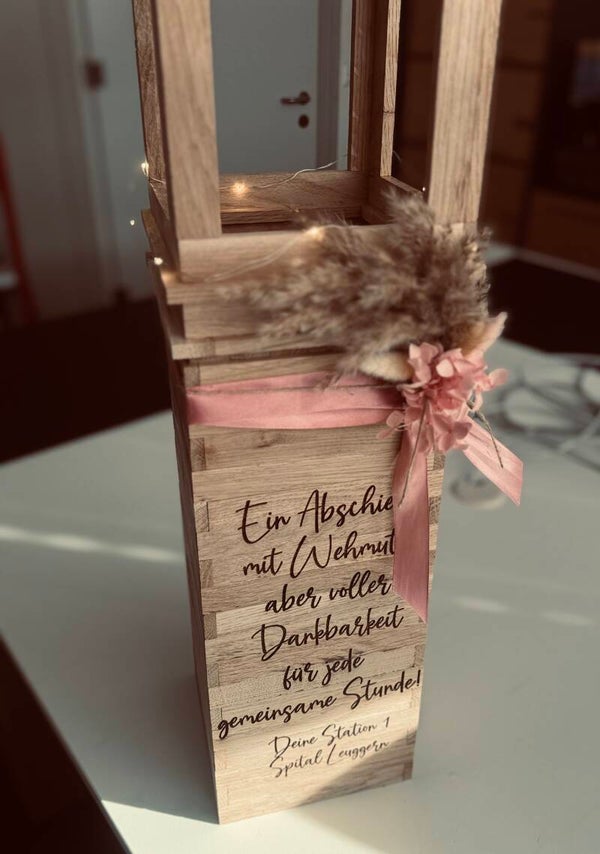 Ein Abschie
mit Wehmut
aber voller
Dankbarkeit
für jede
gemeinsame Stunde!
Deine Station 1
Spital Leuggern